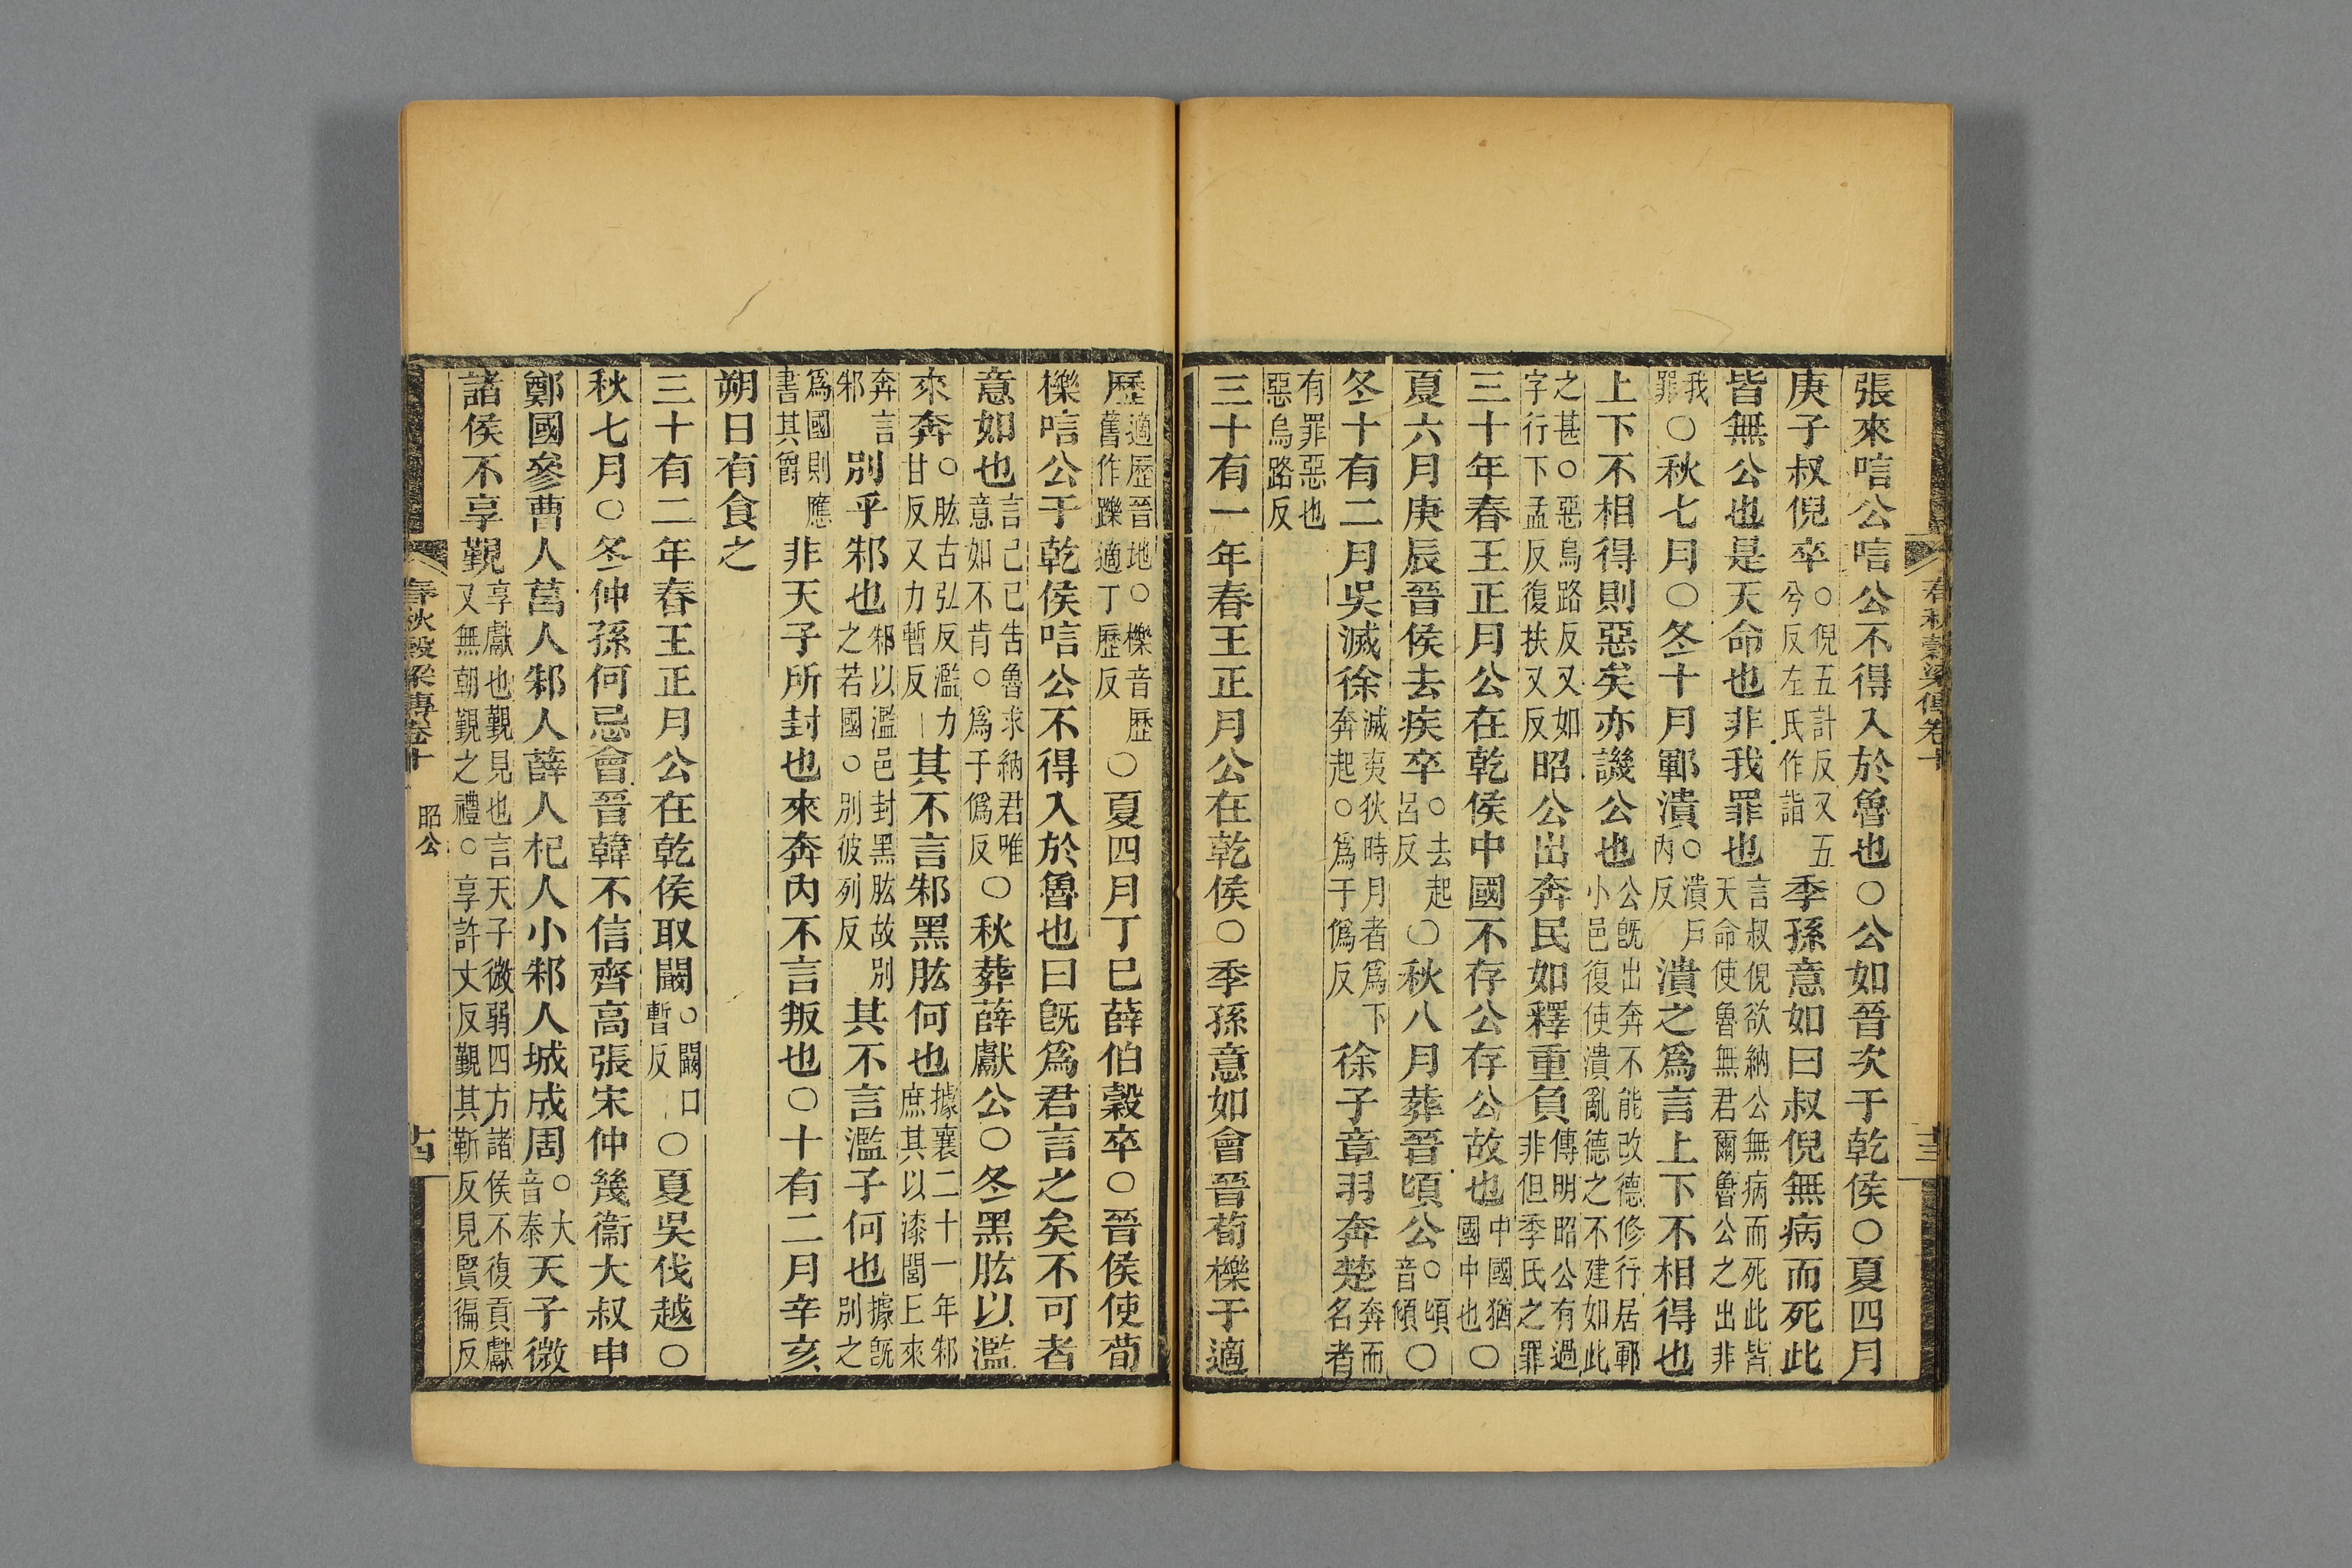 張來唁公唁公不得入於魯也○公如晉次于乾侯○夏四月
庚子叔倪卒○倪五計反又五兮反左氏作詣季孫意如曰叔倪無病而死此
皆無公也是天命也非我罪也言叔倪欲納公無病而死此皆天命使魯無君爾魯公之出非
我罪○秋七月○冬十月鄆潰○潰戶內反潰之爲言上下不相得也
上下不相得則惡矣亦譏公也公旣出奔不能改德修行居鄆小邑復使潰亂德之不建如此
之甚○惡烏路反又如字行下孟反復扶又反昭公出奔民如釋重負傳明昭公有過非但季氏之罪
三十年春王正月公在乾侯中國不存公存公故也中國猶國中也○
夏六月庚辰晉侯去疾卒○去起呂反○秋八月葬晉頃公○頃音傾○
冬十有二月吳滅徐滅夷狄時月者爲下奔起○爲于僞反徐子章羽奔楚奔而名者
有罪惡也惡烏路反
三十有一年春王正月公在乾侯○季孫意如會晉荀櫟于適
春秋穀梁傳卷十
十三
歷適歷晉地○櫟音歷舊作躒適丁歷反○夏四月丁巳薛伯穀卒○晉侯使荀
櫟唁公于乾侯唁公不得入於魯也曰旣爲君言之矣不可者
意如也言己已告魯求納君唯意如不肯○爲于僞反○秋葬薛獻公○冬黑肱以濫
來奔○肱古弘反濫力甘反又力暫反其不言邾黑肱何也據襄二十一年邾庶其以漆閭丘來
奔言邾別乎邾也邾以濫邑封黑肱故別之若國○別彼列反其不言濫子何也據旣別之
爲國則應書其爵非天子所封也來奔內不言叛也○十有二月辛亥
朔日有食之
三十有二年春王正月公在乾侯取闞○闞口暫反○夏吳伐越○
秋七月○冬仲孫何忌會晉韓不信齊高張宋仲幾衞大叔申
鄭國參曹人莒人邾人薛人杞人小邾人城成周○大音泰天子微
諸侯不享覲享獻也覲見也言天子微弱四方諸侯不復貢獻又無朝覲之禮○享許丈反覲其靳反見賢徧反
春秋穀梁傳卷十
昭公
十四